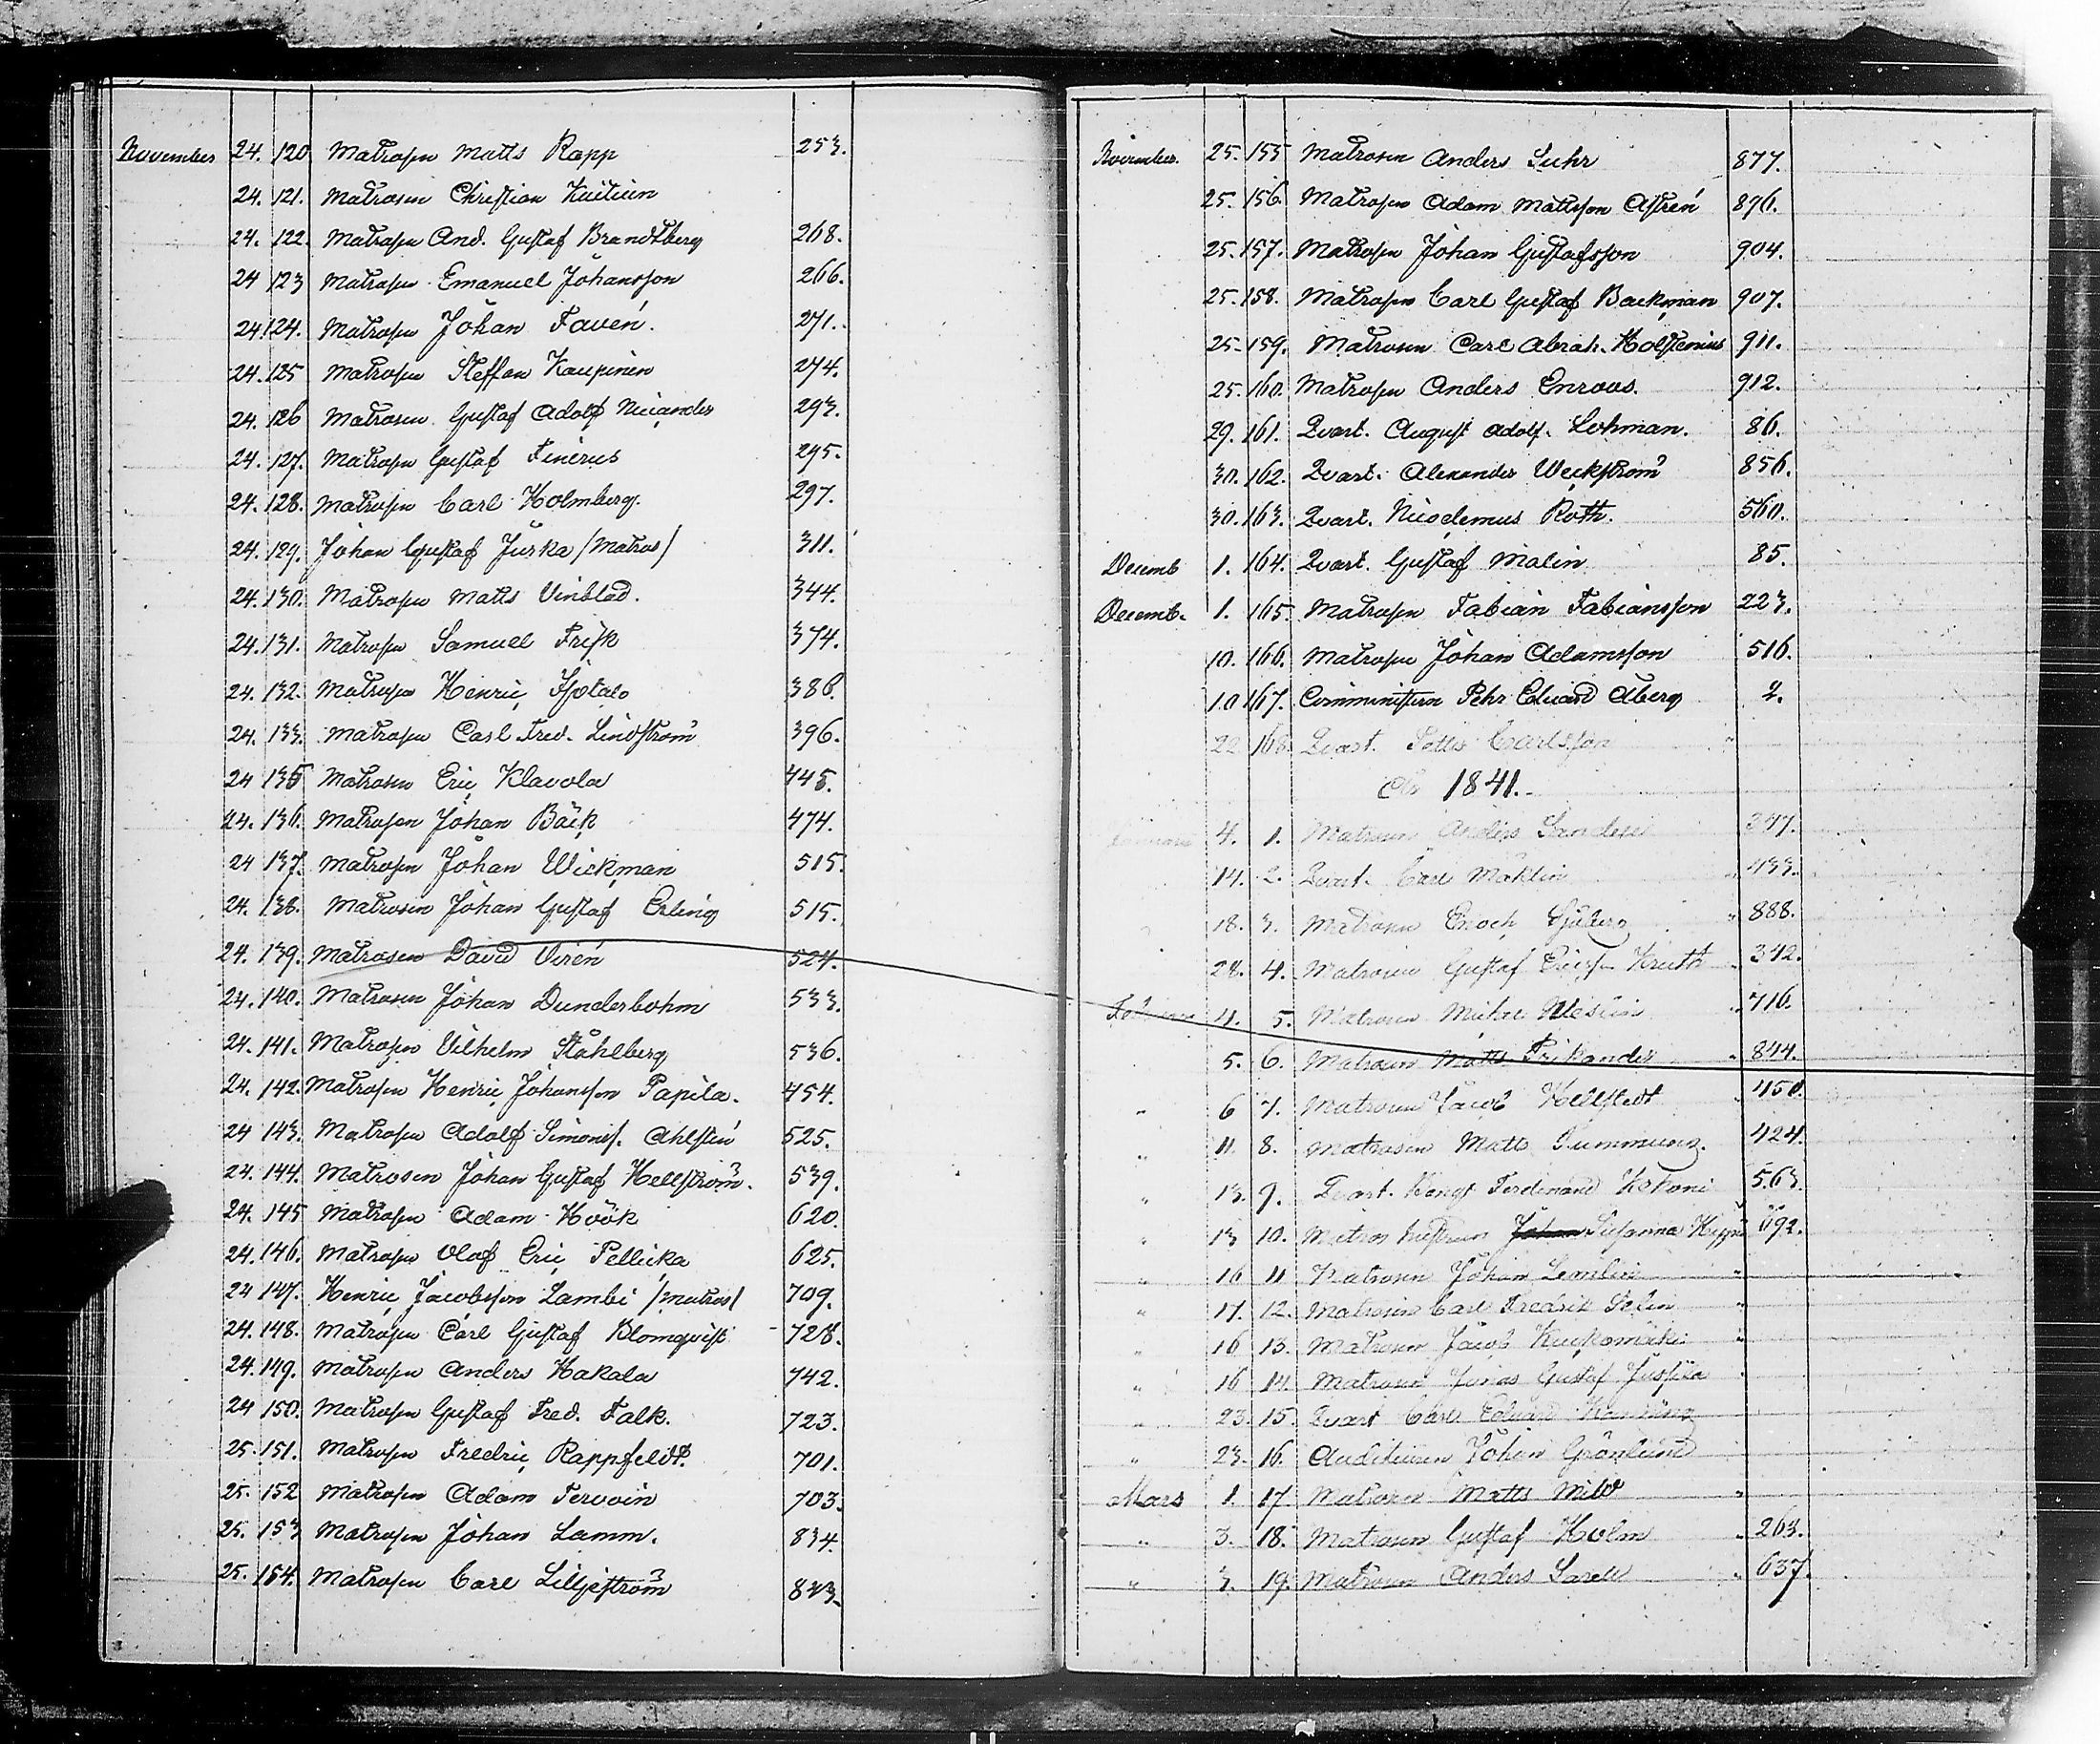 November 24. 120 Matrosen Matts Rapp 253.
24. 121. Matrosen Christian
24. 122. Matrosen And. Gustaf Brandtberg 268.
24 123 Matrosen Emanuel Johansson 266.
24. 124. Matrosen Johan Favén. 271.
24. 125 Matrosen Steffan Kaupinen 274.
24. 126 Matrosen Gustaf Adolf Nicander 293.
24. 127. Matrosen Gustaf Finerus 295.
24. 128. Matrosen Carl Holmberg. 297.
24. 129. Johan Gustaf Jurka /Matros/ 311.
24. 130. Matrosen Matts Vinblad. 344.
24. 131. Matrosen Samuel Frisk 374.
24. 132. Matrosen Henric Isotalo 386.
24. 133. Matrosen Carl Fred. Lindström 396.
24 135 Matrosen Eric Klavola 445.
24. 136. Matrosen Johan Bäck 474.
24 137. Matrosen Johan Wickman 515.
24. 138. Matrosen Johan Gustaf Erling 515.
24. 139. Matrosen David Virén 524.
24. 140. Matrosen Johan Dunderbohm 533.
24. 141. Matrosen Vilhelm Ståhlberg 536.
24. 142. Matrosen Henric Johansson Papila. 454.
24 143. Matrosen Adolf Simonss. Ahlstén 525.
24. 144. Matrosen Johan Gustaf Hellström. 539.
24. 145 Matrosen Adam Höök 620.
24. 146. Matrosen Olof Eric Pellicka 625.
24 147. Henric Jacobsson Lambi /matros/ 709.
24. 148. Matrosen Carl Gustaf Blomqvist 728.
24. 149. Matrosen Anders Hakala 742.
24 150. Matrosen Gustaf Fred. Falk. 723.
25. 151. Matrosen Fredric Rappfeldt. 701.
25. 152 Matrosen Adam Tervoin 703.
25. 153 Matrosen Johan Lamm. 834.
25. 154. Matrosen Carl Liljeström 843.
November. 25. 155 Matrosen Anders Suhr 877.
25. 156. Matrosen Adam Mattsson Astrén 896.
25. 157. Matrosen Johan Gustafsson 904.
25. 158. Matrosen Carl Gustaf Backman 907.
25. 159. Matrosen Carl Abrah. Holstenius 911.
25. 160. Matrosen Anders Enroos. 912.
29. 161. Qvart. August Adolf. Lohman. 86.
30. 162. Qvart. Alexander Weckström 856.
30. 163. Qvart. Nicodemus Roth. 560.
Decemb 1. 164. Qvart. Gustaf Malin 85.
Decemb. 1. 165. Matrosen Fabian Fabiansson 223.
10. 166. Matrosen Johan Adamsson 516.
10 167. Comministern Pehr Eduard Åberg 2.
22 168. Qvart. Carlsson "
År 1841.
Januari 4. 1. Matrosen Anders 347.
14. 2. Qvart. Carl Mäklin " 433.
18. 3. Matrosen Enoch Sjöberg " 888.
28. 4. Matrosen Gustaf Ericss. Kruth " 342.
Februari 4. 5. Matrosen Michel " 716.
5. 6. Matrosen Matts Frikander " 844.
" 6 7. Matrosen Jacob Hellstedt " 450.
" 11. 8. Matrosen Matts " 424.
" 13. 9. Qvart. Bengt Ferdinand 563.
" 13 10. Matros Hustrun Johan Susanna 692.
" 16 11 Matrosen Johan Lemlin "
" 17. 12. Matrosen Carl Fredrik Selin "
" 16 13. Matrosen Jacob "
" 16 14. Matrosen Junas Gustaf Jussila
" 23. 15. Qvart Carl Eduard
" 23. 16. Auditeuren Johan Grönlund
Mars 1. 17. Matrosen Matts Mild "
" 3. 18. Matrosen Gustaf Holm " 263.
" 3. 19. Matrosen Anders Sarell " 637.